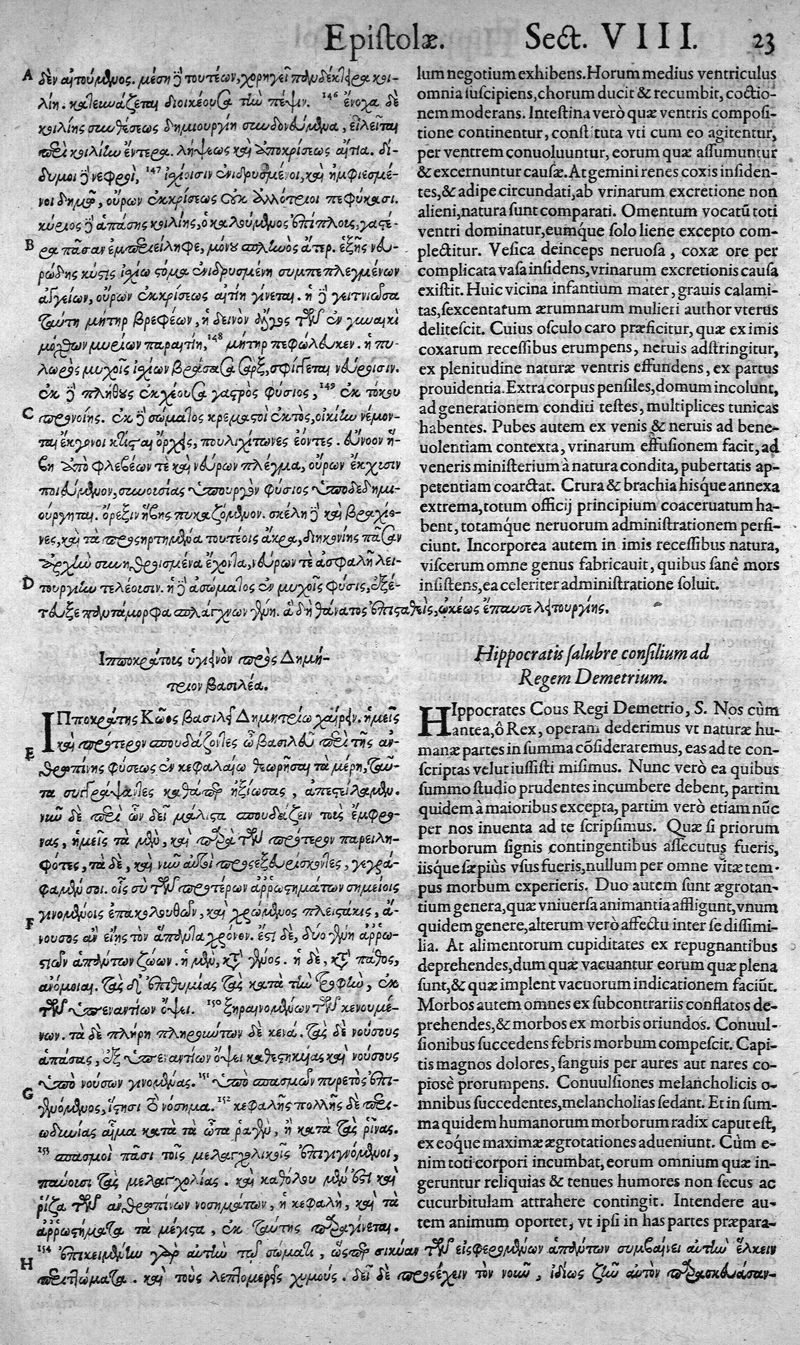 Epiſtolæ. Sect. VIII. 23
A
δὲν αἰτούμενος. μέση δὲ τουτέων, χορηγεῖ πανδέκτειρα κοι-
λίη. κατευνάζεται διοικέουσα τὴν πέψιν. 146 ἔνοχα δὲ
κοιλίης συνθέσεως δημιουργίη συνδονεύμενα, εἱλεῖται
περὶ κοιλίην ἔντερα. λήψεως καὶ ἀποκρίσεως αἴτια. δί-
δυμοι δὲ νεφροὶ, 147 ἰσχίοισιν ἐνιδρυσμένοι, καὶ ἠμφιεσμέ-
νοι δημῷ, οὔρων ἐκκρίσεως οὐκ ἀλλότριοι πεφύκασι.
κύριος δὲ ἁπάσης κοιλίης, ὁ καλούμενος ἐπίπλοις, γαστέ-
B
ρα πᾶσαν ἐμπεριείληφε, μόνου σπληνὸς ἄτερ. ἑξῆς νευ-
ρώδης κύστις ἰσχίῳ στόμα ἐνιδρυσμένη συμπεπλεγμένων
ἀγγείων, οὔρων ἐκκρίσεως αἰτίη γίνεται. ἡ δὲ γειτνιῶσα
ταύτῃ μήτηρ βρεφέων, ἡ δεινὸν ἄλγος τῶν ἐν γυναικὶ
μόχθων μυρίων παραιτίη, 148 μήτηρ πεφώλευκεν. ἡ πυ-
λωρὸς μυχοῖς ἰσχίων βράσασα σὰρξ, σφίγγεται νεύροισιν.
ἐκ δὲ πλήθους ἐκχέουσα γαστρὸς φύσιος, 149 ἐκ τόκου
C
προνοίης. ἐκ δὲ σώματος κρεμαστοὶ ἐκτὸς, οἰκίην νέμον-
ται ἔκγονοι κτίσται ὄρχεις, πουλυχίτωνες ἐόντες. εὔνοον ἥ-
βη ἀπὸ φλεβέων τε καὶ νεύρων πλέγμα, οὔρων ἔκχυσιν
ποιεύμενον, συνουσίας ὑπουργὸν φύσιος ὑποδεδημι-
ούργηται. ὄρεξιν ἥβης πυκαζόμενον. σκέλη δὲ καὶ βραχίο-
νες, καὶ τὰ προσηρτημένα τουτέοις ἄκρα, διηκονίης πᾶσαν
ἀρχὴν συνηθροισμένα ἔχοντα, νεύρων τε ἀσφαλῆ λει-
D
τουργίην τελέοισιν. ἡ δὲ ἀσώματος ἐν μυχοῖς φύσις, ἐξέ-
τευξε παντάμορφα σπλάγχνων γένη. ἃ δὴ θάνατος ἐπισταθεὶς, ὠκέως ἔπαυσε λειτουργίης.
lum negotium exhibens. Horum medius ventriculus
omnia ſuſcipiens, chorum ducit & recumbit, coctio-
nem moderans. Inteſtina verò quæ ventris compoſi-
tione continentur, conſtituta vti cum eo agitentur,
per ventrem conuoluuntur, eorum quæ aſſumuntur
& excernuntur cauſæ. At gemini renes coxis inſiden-
tes, & adipe circundati, ab vrinarum excretione non
alieni, natura ſunt comparati. Omentum vocatū toti
ventri dominatur, eumque ſolo liene excepto com-
plectitur. Veſica deinceps neruoſa, coxæ ore per
complicata vaſa inſidens, vrinarum excretionis cauſa
exiſtit. Huic vicina infantium mater, grauis calami-
tas, ſexcentarum ærumnarum mulieri author vterus
deliteſcit. Cuius oſculo caro præficitur, quæ ex imis
coxarum receſſibus erumpens, neruis adſtringitur,
ex plenitudine naturæ ventris effundens, ex partus
prouidentia. Extra corpus penſiles, domum incolunt,
ad generationem conditi teſtes, multiplices tunicas
habentes. Pubes autem ex venis & neruis ad bene-
uolentiam contexta, vrinarum effuſionem facit, ad
veneris miniſterium à natura condita, pubertatis ap-
petentiam coarctat. Crura & brachia hisque annexa
extrema, totum officij principium coaceruatum ha-
bent, totamque neruorum adminiſtrationem perfi-
ciunt. Incorporea autem in imis receſſibus natura,
viſcerum omne genus fabricauit, quibus ſanè mors
inſiſtens, ea celeriter adminiſtratione ſoluit.
Ἱπποκράτους ὑγιεινὸν πρὸς Δημή-
τριον βασιλέα.
ἹΠποκράτης Κῶος βασιλεῖ Δημητρίῳ χαίρειν. ἡμεῖς
E
καὶ πρότερον σπουδάζοντες ὦ βασιλεῦ περὶ τῆς ἀν-
θρωπίνης φύσεως ἐν κεφαλαίῳ θεωρῆσαι τὰ μέρη, ταῦ-
τα συγγράψαντες καθάπερ ἠξίωσας, ἀπεστείλαμεν.
νῦν δὲ περὶ ὧν δεῖ μάλιστα σπουδάζειν τοὺς ἔμφρο-
νας, ἡμεῖς τὰ μὲν, καὶ παρὰ τῶν πρότερον παρειλη-
φότες, τὰ δὲ, καὶ νῦν αὐτοὶ προσεξευρίσκοντες, γεγρά-
φαμέν σοι. οἷς σὺ τῶν προτέρων ἀρρωστημάτων σημείοις
F
γινομένοις ἐπακολουθῶν, καὶ χρώμενος πλειστάκις, ἄ-
νουσος ἂν εἴης τὸν ἅπαντα χρόνον. ἔστι δὲ, δύο γένη ἀρρω-
στιῶν ἁπάντων ζώων. ἡ μὲν, κατὰ γένος. ἡ δὲ, κατὰ πάθος,
ἀνόμοιαι. τὰς δὲ ἐπιθυμίας τὰς κατὰ τὴν τροφὴν, ἐκ
τῶν ὑπεναντίων ὄψει. 150 ξηραινομένων τῶν κενουμέ-
νων. τὰ δὲ πλήρη πληρούντων δὲ κενά. τὰς δὲ νούσους
ἁπάσας, ἐξ ὑπεναντίων ὄψει καθεστηκυίας καὶ νούσους
ὑπὸ νούσων γινομένας. 151 ὑπὸ σπασμῶν πυρετὸς ἐπι-
G
γενόμενος, ἵστησι τὸ νόσημα. 152 κεφαλῆς πολλῆς δὲ περι-
ωδυνίας αἷμα κατὰ τὰ ὦτα ῥαγὲν, ἢ κατὰ τὰς ῥῖνας.
153 σπασμοὶ πᾶσι τοῖς μελαγχολικοῖς ἐπιγινόμενοι,
παύουσι τὰς μελαγχολίας. καὶ καθόλου μέν ἐστι καὶ
ῥίζα τῶν ἀνθρωπίνων νοσημάτων, ἡ κεφαλὴ, καὶ τὰ
ἀρρωστήματα τὰ μέγιστα, ἐκ ταύτης παραγίνεται.
154 ἐπικειμένην γὰρ αὐτὴν τῷ σώματι, ὥσπερ σικύαν τῶν εἰσφερομένων ἁπάντων συμβαίνει αὐτὴν ἕλκειν
H
περιττώματα. καὶ τοὺς λεπτομερεῖς χυμούς. δεῖ δὲ προσέχειν τὸν νοῦν, ἰδίως ζῆν αὑτὸν παρασκευάσαν-
Hippocratis ſalubre conſilium ad
Regem Demetrium.
HIppocrates Cous Regi Demetrio, S. Nos cùm
antea, ô Rex, operam dederimus vt naturæ hu-
manæ partes in ſumma cōſideraremus, eas ad te con-
ſcriptas velut iuſſiſti miſimus. Nunc verò ea quibus
ſummo ſtudio prudentes incumbere debent, partim
quidem à maioribus excepta, partim verò etiam nūc
per nos inuenta ad te ſcripſimus. Quæ ſi priorum
morborum ſignis contingentibus aſſecutus fueris,
iiſque ſæpiùs vſus fueris, nullum per omne vitæ tem-
pus morbum experieris. Duo autem ſunt ægrotan-
tium genera, quæ vniuerſa animantia affligunt, vnum
quidem genere, alterum verò affectu inter ſe diſſimi-
lia. At alimentorum cupiditates ex repugnantibus
deprehendes, dum quæ vacuantur eorum quæ plena
ſunt, & quæ implent vacuorum indicationem faciūt.
Morbos autem omnes ex ſubcontrariis conflatos de-
prehendes, & morbos ex morbis oriundos. Conuul-
ſionibus ſuccedens febris morbum compeſcit. Capi-
tis magnos dolores, ſanguis per aures aut nares co-
pioſè prorumpens. Conuulſiones melancholicis o-
mnibus ſuccedentes, melancholias ſedant. Et in ſum-
ma quidem humanorum morborum radix caput eſt,
ex eoque maximæ ægrotationes adueniunt. Cùm e-
nim toti corpori incumbat, eorum omnium quæ in-
geruntur reliquias & tenues humores non ſecus ac
cucurbitulam attrahere contingit. Intendere au-
tem animum oportet, vt ipſi in has partes præpara-